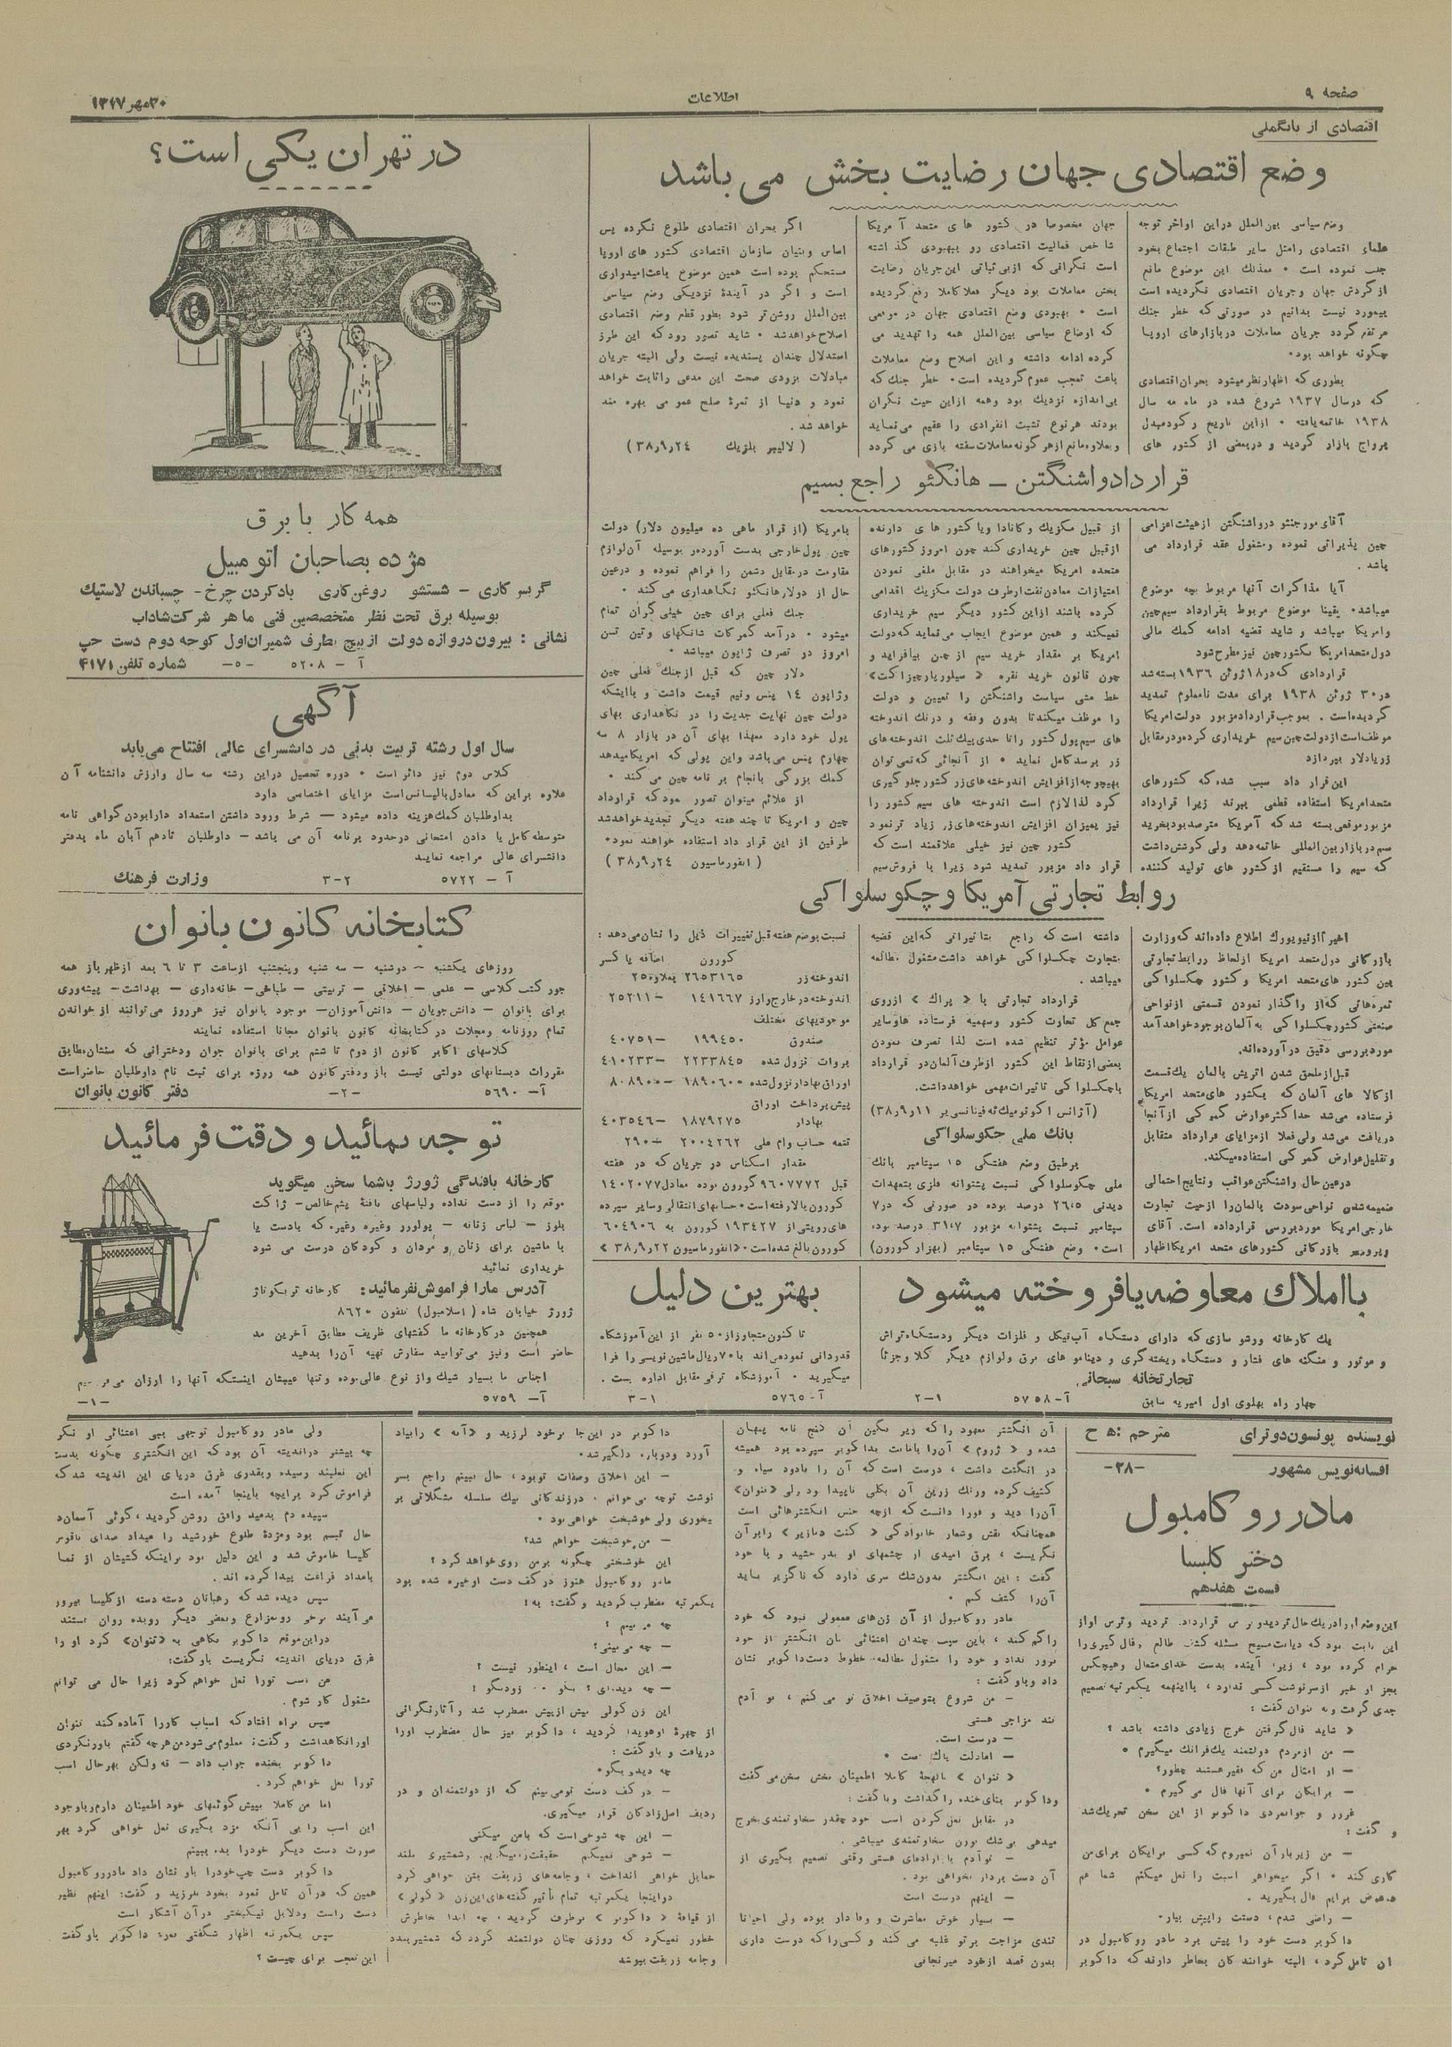 صفحه ۹
اطلاعات
۳۰مهر۱۳۱۷
اقتصادی از بانگملی
وضع اقتصادی جهان رضایت بخش می باشد
وضع سیاسی بین‌الملل دراین اواخر توجه
علماء اقتصادی رامثل سایر طبقات اجتماع بخود
جلب نموده است • معذلك این موضوع مانع
ازگردش جهان وجریان اقتصادی نگردیده است
بیمورد نیست بدانیم در صورتی که خطر جنك
مرتفع گردد جریان معاملات دربازارهای اروپا
چگونه خواهد بود•
بطوری که اظهارنظر میشود بحران اقتصادی
که درسال ۱۹۳۷ شروع شده در ماه مه سال
۱۹۳۸ خاتمه یافته • ازاین تاریخ رکودمبدل
برواج بازار گردید و دربعضی از کشور های
جهان مخصوصا در کشور های متحد آمریکا
شاخص فعالیت اقتصادی رو ببهبودی گذاشته
است نگرانی که ازبی ثباتی این جریان رضایت
بخش معاملات بود دیگر فعلا کاملا رفع گردیده
است • بهبودی وضع اقتصادی جهان در موقعی
که اوضاع سیاسی بین‌الملل همه را تهدید می
کرده ادامه داشته و این اصلاح وضع معاملات
باعث تعجب عموم گردیده است• خطر جنك که
بی‌اندازه نزدیك بود وهمه ازاین حیث نگران
بودند هرنوع تشبث انفرادی را عقیم می‌نماید
وبعلاوه مانع ازهرگونه معاملات سفته بازی می گردد
اگر بحران اقتصادی طلوع نکرده پس
اساس وبنیان سازمان اقتصادی کشور های اروپا
مستحکم بوده است همین موضوع باعث امیدواری
است و اگر در آیندۀ نزدیکی وضع سیاسی
بین‌الملل روشن‌تر شود بطور قطع وضع اقتصادی
اصلاح خواهدشد • شاید تصور رود که این طرز
استدلال چندان پسندیده نیست ولی البته جریان
مبادلات بزودی صحت این مدعی راثابت خواهد
نمود و دنیا از ثمرۀ صلح عمومی بهره مند
خواهد شد .
( لالیبر بلژیك ۲۴ر۹ر۳۸)
قراردادواشنگتن – هانکئو راجع بسیم
آقای مورجنئو درواشنگتن ازهیئت اعزامی
چین پذیرائی نموده ومشغول عقد قرارداد می
باشد .
آیا مذاکرات آنها مربوط بچه موضوع
میباشد• یقینا موضوع مربوط بقرارداد سیم‌چین
وامریکا میباشد و شاید قضیه ادامه کمك مالی
دول متحدامریکا بکشورچین نیز مطرح شود
قراردادی که در۱۸ژوئن ۱۹۳۶ بسته شد
در۳۰ ژوئن ۱۹۳۸ برای مدت نامعلوم تمدید
گردیده است . بموجب قرارداد مزبور دولت امریکا
موظف است ازدولت چین سیم خریداری کرده ودرمقابل
زریادلار بپردازد
این قرار داد سبب شده که کشورهای
متحدامریکا استفاده قطعی ببرند زیرا قرارداد
مزبورموقعی بسته شد که آمریکا مترصدبودبخرید
سیم دربازار بین‌المللی خاتمه دهد ولی کوشش داشت
که سیم را مستقیم ازکشور های تولید کننده
از قبیل مکزیك وکانادا ویا کشور های دارنده
ازقبیل چین خریداری کند چون امروز کشورهای
متحده امریکا میخواهند در مقابل ملغی نمودن
امتیازات معادن نفت ازطرف دولت مکزیك اقدامی
کرده باشند ازاین کشور دیگر سیم خریداری
نمیکند و همین موضوع ایجاب می نماید که دولت
امریکا بر مقدار خرید سیم از چین بیافزاید و
چون قانون خرید نقره « سیلورپارچیزاکت»
خط مشی سیاست واشنگتن را تعیین و دولت
را موظف میکندتا بدون وقفه و درنك اندوخته
های سیم پول کشور راتا حدی بیك ثلث اندوخته های
زر برسد کامل نماید • از آنجائی که نمی توان
بهیچوجه ازافزایش اندوخته‌های زر کشور جلو گیری
کرد لذا لازم است اندوخته های سیم کشور را
نیز بمیزان افزایش اندوخته‌های زر زیاد تر نمود
کشور چین نیز خیلی علاقمند است که
قرار داد مزبور تمدید شود زیرا با فروش سیم
بامریکا (از قرار ماهی ده میلیون دلار) دولت
چین پول خارجی بدست آورده بوسیله آن لوازم
مقاومت درمقابل دشمن را فراهم نموده و درعین
حال از دولار هانکئو نگاهداری می کند •
جنك فعلی برای چین خیلی گران تمام
میشود • درآمد گمرکات شانگهای وتین تسن
امروز در تصرف ژاپون میباشد •
دلار چین که قبل ازجنك فعلی چین
وژاپون ۱۴ پنس ونیم قیمت داشت و بااینکه
دولت چین نهایت جدیت را در نگاهداری بهای
پول خود دارد معهذا بهای آن در بازار ۸ سه
چهارم پنس می‌باشد واین پولی که امریکامیدهد
کمك بزرگی بانجام برنامه چین می کند •
از علائم میتوان تصور نمود که قرارداد
چین و امریکا تا چند هفته دیگر تجدیدخواهدشد
طرفین از این قرار داد استفاده خواهند نمود•
( انفورماسیون ۲۴ر۹ر۳۸)
روابط تجارتی آمریکا و چکوسلواکی
اخیراازنیویورك اطلاع داده‌اند که وزارت
بازرگانی دول‌متحد امریکا ازلحاظ روابط تجارتی
بین کشور های متحد امریکا و کشور چکسلواکی
ثمره‌هائی که از واگذار نمودن قسمتی ازنواحی
صنعتی کشورچکسلواکی به آلمان بوجودخواهدآمد
موردبررسی دقیق درآورده‌اند.
قبل‌ازملحق شدن اتریش بآلمان یك‌قسمت
ازکالا های آلمان که بکشور های‌متحد امریکا
فرستاده می‌شد حداکثر عوارض گمرکی ازآنجا
دریافت می‌شد ولی فعلا ازمزایای قرارداد متقابل
وتقلیل عوارض گمرکی استفاده میکند.
درعین‌حال واشنگتن عواقب ونتایج احتمالی
ضمیمه شدن نواحی سودت بآلمان‌را ازحیث تجارت
خارجی امریکا موردبررسی قرارداده است. آقای
وزیر بازرگانی کشورهای متحد امریکا اظهار
داشته است که راجع بتاثیراتی که این قضیه
بتجارت چکسلواکی خواهد داشت مشغول مطالعه
میباشد.
قرارداد تجارتی با « پراك » ازروی
جمع کل تجارت کشور وسهمیه فرستاده ها وسایر
عوامل مؤثر تنظیم شده است لذا تصرف نمودن
بعضی ازنقاط این کشور ازطرف آلمان‌در قرارداد
باچکسلواکی تاثیرات مهمی خواهدداشت.
(آژانس اکونومیك ئه فینانسی‌یر ۱۱ر۹ر۳۸)
بانك ملی چکوسلواکی
برطبق وضع هفتگی ۱۵ سپتامبر بانك
ملی چکوسلواکی نسبت پشتوانه فلزی بتعهدات
دیدنی ۲۶ر۵ درصد بوده در صورتی که در۷
سپتامبر نسبت پشتوانه مزبور ۳۱ر۷ درصد بود.
است• وضع هفتگی ۱۵ سپتامبر (بهزار کورون)
نسبت بوضع هفته قبل تغییرات ذیل را نشان می‌دهد :
کورون اضافه یا کسر
اندوخته‌زر ۲۶۵۳۱۶۵ بعلاوه۲۵
اندوخته درخارج وارز ۱۴۱۶۶۷ –۲۵۲۱۱
موجودیهای مختلف
صندوق ۱۹۹۴۵۰ –۴۰۷۵۱
بروات نزول شده ۲۲۳۳۸۴۵ –۴۱۰۲۳۳
اوراق بهادار نزول شده ۱۸۹۰۶۰۰ –۸۰۸۹۰۰
پیش پرداخت اوراق
بهادار ۱۸۷۹۲۷۵ –۴۰۳۵۴۶
تتمه حساب وام ملی ۲۰۰۴۲۶۲ –۲۹۰
مقدار اسکناس در جریان که در هفته
قبل ۹۶۰۷۷۷۲ کورون بوده معادل۱۴۰۲۰۷۷
کورون بالا رفته است• حسابهای انتقالی وسایر سپرده
های‌رویتی از۱۹۳۴۲۷ کورون به ۶۰۴۹۰۶
کورون بالغ شده است• «انفورماسیون ۲۲ر۹ر۳۸»
بااملاك معاوضه یافروخته میشود
یك کارخانه ورشو سازی که دارای دستگاه آب‌نیکل و فلزات دیگر ودستگاه‌تراش
و موتور و منگنه های فشار و دستگاه ریخته گری و دینامو های برق ولوازم دیگر کلا وجزئا
تجارتخانه سبحانی
چهار راه پهلوی اول امیریه سابق آ– ۵۷۵۸ ۱–۲
بهترین دلیل
تا کنون متجاوزاز۵۰ نفر از این آموزشگاه
قدردانی نموده‌می اند با۷۰ریال ماشین نویسی را فرا
میگیرید • آموزشگاه ترقی مقابل اداره پست .
آ–۵۷۶۵ ۱–۳
در تهران یکی است؟
همه کار با برق
مژده بصاحبان اتومبیل
گریس کاری – شستشو روغن کاری بادکردن چرخ– چسباندن لاستیك
بوسیله برق تحت نظر متخصصین فنی ماهر شرکت شاداب
نشانی : بیرون دروازه دولت ازپیچ بطرف شمیران اول کوچه دوم دست چپ
آ – ۵۲۰۸ –۵ شماره تلفن ۴۱۷۱
آگهی
سال اول رشته تربیت بدنی در دانشسرای عالی افتتاح می‌یابد
کلاس دوم نیز دائر است • دوره تحصیل دراین رشته سه سال وارزش دانشنامه آن
علاوه براین که معادل بالیسانس است مزایای اختصاصی دارد
بداوطلبان کمك هزینه داده میشود – شرط ورود داشتن استعداد دارابودن گواهی نامه
متوسطه کامل یا دادن امتحانی درحدود برنامه آن می باشد – داوطلبان تادهم آبان ماه بدفتر
دانشسرای عالی مراجعه نمایند
آ – ۵۷۲۲ ۲–۳ وزارت فرهنك
کتابخانه کانون بانوان
روزهای یکشنبه – دوشنبه – سه شنبه وپنجشنبه ازساعت ۳ تا ۶ بعد ازظهر باز همه
جور کتب کلاسی – علمی – اخلاقی – تربیتی – طباخی – خانه‌داری – بهداشت– پیشه‌وری
برای بانوان – دانش‌جویان – دانش‌آموزان– موجود بانوان نیز هرروز می‌توانند ازخواندن
تمام روزنامه ومجلات درکتابخانه کانون بانوان مجانا استفاده نمایند
کلاسهای اکابر کانون از دوم تا ششم برای بانوان جوان ودخترانی که سنشان‌مطابق
مقررات دبستانهای دولتی نیست باز ودفترکانون همه روزه برای ثبت نام داوطلبان حاضراست
آ– ۵۶۹۰ –۲– دفتر کانون بانوان
توجه بمائید و دقت فرمائید
کارخانه بافندگی ژورژ باشما سخن میگوید
موقع را از دست نداده ولباسهای بافتۀ پشم‌خالص– ژاکت
بلوز – لباس زنانه – پولوور وغیره وغیره که بادست یا
با ماشین برای زنان و مردان و کودکان درست می شود
خریداری نمائید
آدرس مارا فراموش نفرمائید: کارخانه تریکوتاژ
ژورژ خیابان شاه (اسلامبول) تلفون ۸۶۲۰
همچنین درکارخانه ما کفشهای ظریف مطابق آخرین مد
حاضر است ونیز می‌توانید سفارش تهیه آن‌را بدهید
اجناس ما بسیار شیك واز نوع عالی‌بوده وتنها عیبشان اینستکه آنها را ارزان
آ– ۵۷۵۹ –۱–
نویسنده پونسون‌دوترای مترجم :۵ ح
افسانه‌نویس مشهور –۳۸–
مادر روکامبول
دختر کلیسا
قسمت هفدهم
این ثابت بود که دیانت مسیح مسئله کشف طالع وفال گیری را
حرام کرده بود ، زیرا آینده بدست خدای‌متعال وهیچکس
بجز او خبر ازسرنوشت کسی ندارد ، بااینهمه یکمرتبه‌تصمیم
جدی گرفت وبه تنوان گفت :
« شاید فال گرفتن خرج زیادی داشته باشد ؟
– من ازمردم دولتمند یك‌فرانك میگیرم •
– از امثال من که فقیر هستند چطور؟
– برایگان برای آنها فال می گیرم •
غرور و جوانمردی داکوبر از این سخن تحریك شد
و گفت :
– من زیربارآن نمیروم که کسی برایگان برای‌من
کاری کند • اگر میخواهی اسبت را نعل میکنم شما هم
درعوض برایم فال بگیرید .
– راضی شدم ، دستت راپیش بیار•
داکوبر دست خود را پیش برد مادر روکامبول در
آن تامل کرد ، البته خوانندگان بخاطر دارند که داکوبر
آن انگشتر معهود را که زیر نگین آن گنج نامه پنهان
شده و « ژروم » آن‌را بامانت بداکوبر سپرده بود همیشه
در انگشت داشت ، درست است که آن را بادود سیاه و
کثیف کرده ورنك زرین آن بکلی ناپیدا بود ولی «تنوان»
آن‌را دید و فورا دانست که ازچه جنس انگشترهائی است
همچنانکه نقش وشعار خانوادگی « کنت دمازیر » رابرآن
نگریست ، برق امیدی از چشمهای او بدرخشید و با خود
گفت : این انگشتر بدون‌شك سری دارد که ناگزیر باید
آن‌را کشف کنم •
مادر روکامبول از آن زن‌های معمولی نبود که خود
را گم کند ، باین سبب چندان اعتنائی بآن انگشتر از خود
بروز نداد و خود را مشغول مطالعه خطوط دست‌داکوبر نشان
داد وباوگفت :
– من شروع بتوصیف اخلاق تو می کنم ، تو آدم
تند مزاجی هستی
– درست است.
– اما دلت پاك است •
« تنوان » بالهجۀ کاملا اطمینان بخش سخن می گفت
وداکوبر بنای‌خنده راگذاشت وباگفت:
در مقابل نعل‌کردن اسب خود چقدر سخاوتمندی‌بخرج
میدهی بی‌شك توزن سخاوتمندی میباشی .
– تو آدم بااراده‌ای هستی وقتی تصمیم بگیری از
آن دست بردار نخواهی بود.
– اینهم درست است
– بسیار خوش معاشرت و وفادار بوده ولی احیانا
تندی مزاجت برتو غلبه می کند و کسی‌را که درست داری
بدون قصد ازخود میرنجانی
داکوبر در این‌جا برخود لرزید و «آه » رابیاد
آورد ودوباره دلگیرشد•
– این اخلاق وصفات توبود ، حال ببینم راجع بسر
نوشت توچه می‌خوانم . درزندگانی بیك سلسله مشکلاتی بر
بخوری ولی خوشبخت خواهی‌بود •
– من خوشبخت خواهم شد؟
این خوشبختی چگونه برمن روی‌خواهد کرد ؟
مادر روکامبول هنوز درکف دست او خیره شده بود
یکمرتبه مضطرب گردید و گفت: به!
چه می‌بینم ؟
– چه می‌بینی؟
– این محال است ، اینطور نیست ؟
– چه دیده‌ای؟ بگو •• زودبگو !
این زن کولی بیش‌ازپیش مضطرب شد وآثارنگرانی
از چهرۀ اوهویدا گردید ، داکوبر نیز حال مضطرب اورا
دریافت و باو گفت :
چه دیدی‌بگو•
– درکف دست تومی‌بینم که از دولتمندان و در
ردیف اصل‌زادگان قرار میگیری.
– این چه شوخی‌است که بامن میکنی
– شوخی نمیکنم حقیقت‌رامیگویم، شمشیری بلند
حمایل خواهی انداخت ، وجامه‌های زربفت بتن خواهی کرد
دراینجا یکمرتبه تمام تأثیر گفته‌های این‌زن «کولی»
از قیافۀ « داکوبر » برطرف گردید، چه ابدا بخاطرش
خطور نمیکرد که روزی چنان دولتمند گردد که شمشیر ببندد
وجامه زربفت بپوشد
ولی مادر روکامبول توجهی ببی اعتنائی او نکر
چه بیشتر دراندیشه آن بود که این انگشتری چگونه بدست
این نعلبند رسیده وبقدری غرق دریای این اندیشه شد که
فراموش کرد برایچه باینجا آمده است
سپیده دم بدمید وافق روشن گردید ، گوئی آسمان‌د
حال تبسم بود ومژدۀ طلوع خورشید را میداد صدای ناقوس
کلیسا خاموش شد و این دلیل بود براینکه کشیشان از نما
بامداد فراغت پیدا کرده اند .
سپس دیده شد که رهبانان دسته دسته ازکلیسا بیرون
می‌آیند برخی رومزارع وبعضی دیگر روبده روان هستند
دراین‌موقع داکوبر نگاهی به «تنوان» کرد او را
غرق دریای اندیشه نگریست باو گفت:
من اسب تورا نعل خواهم کرد زیرا حال می توانم
مشغول کار شوم .
سپس براه افتاد که اسباب کاررا آماده کند تنوان
اورانگاهداشت و گفت: معلوم می‌شود من هرچه گفتم باورنکردی
داکوبر بخنده جواب داد – نه ولیکن بهرحال اسب
تورا نعل خواهم کرد .
اما من کاملا بپیش‌گوئیهای خود اطمینان دارم وباوجود
این اسب را بی آنکه مزد بگیری نعل خواهی کرد بهر
صورت دست دیگر خودرا بده ببینم
داکوبر دست چپ‌خودرا باو نشان داد مادرروکامبول
همین که درآن تامل نمود بخود بلرزید و گفت: اینهم نظیر
دست راست ودلایل نیکبختی درآن آشکار است
سپس یکمرتبه اظهار شگفتی نمود داکوبر باوگفت
این تعجب برای چیست ؟